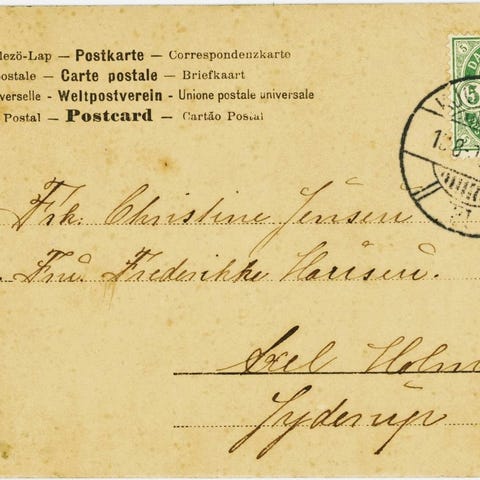 lezö-Lap — Postkarte — Correspondenzkarte
ostale — Carte postale — Briefkaart
verselle - Weltpostverein - Unione postale universale
Postal — Postcard — Cartão Postal
5 DA
5
Frk. Christine Jensen
Fru Frederikke Hansen.
Axel Holm
Jyderup